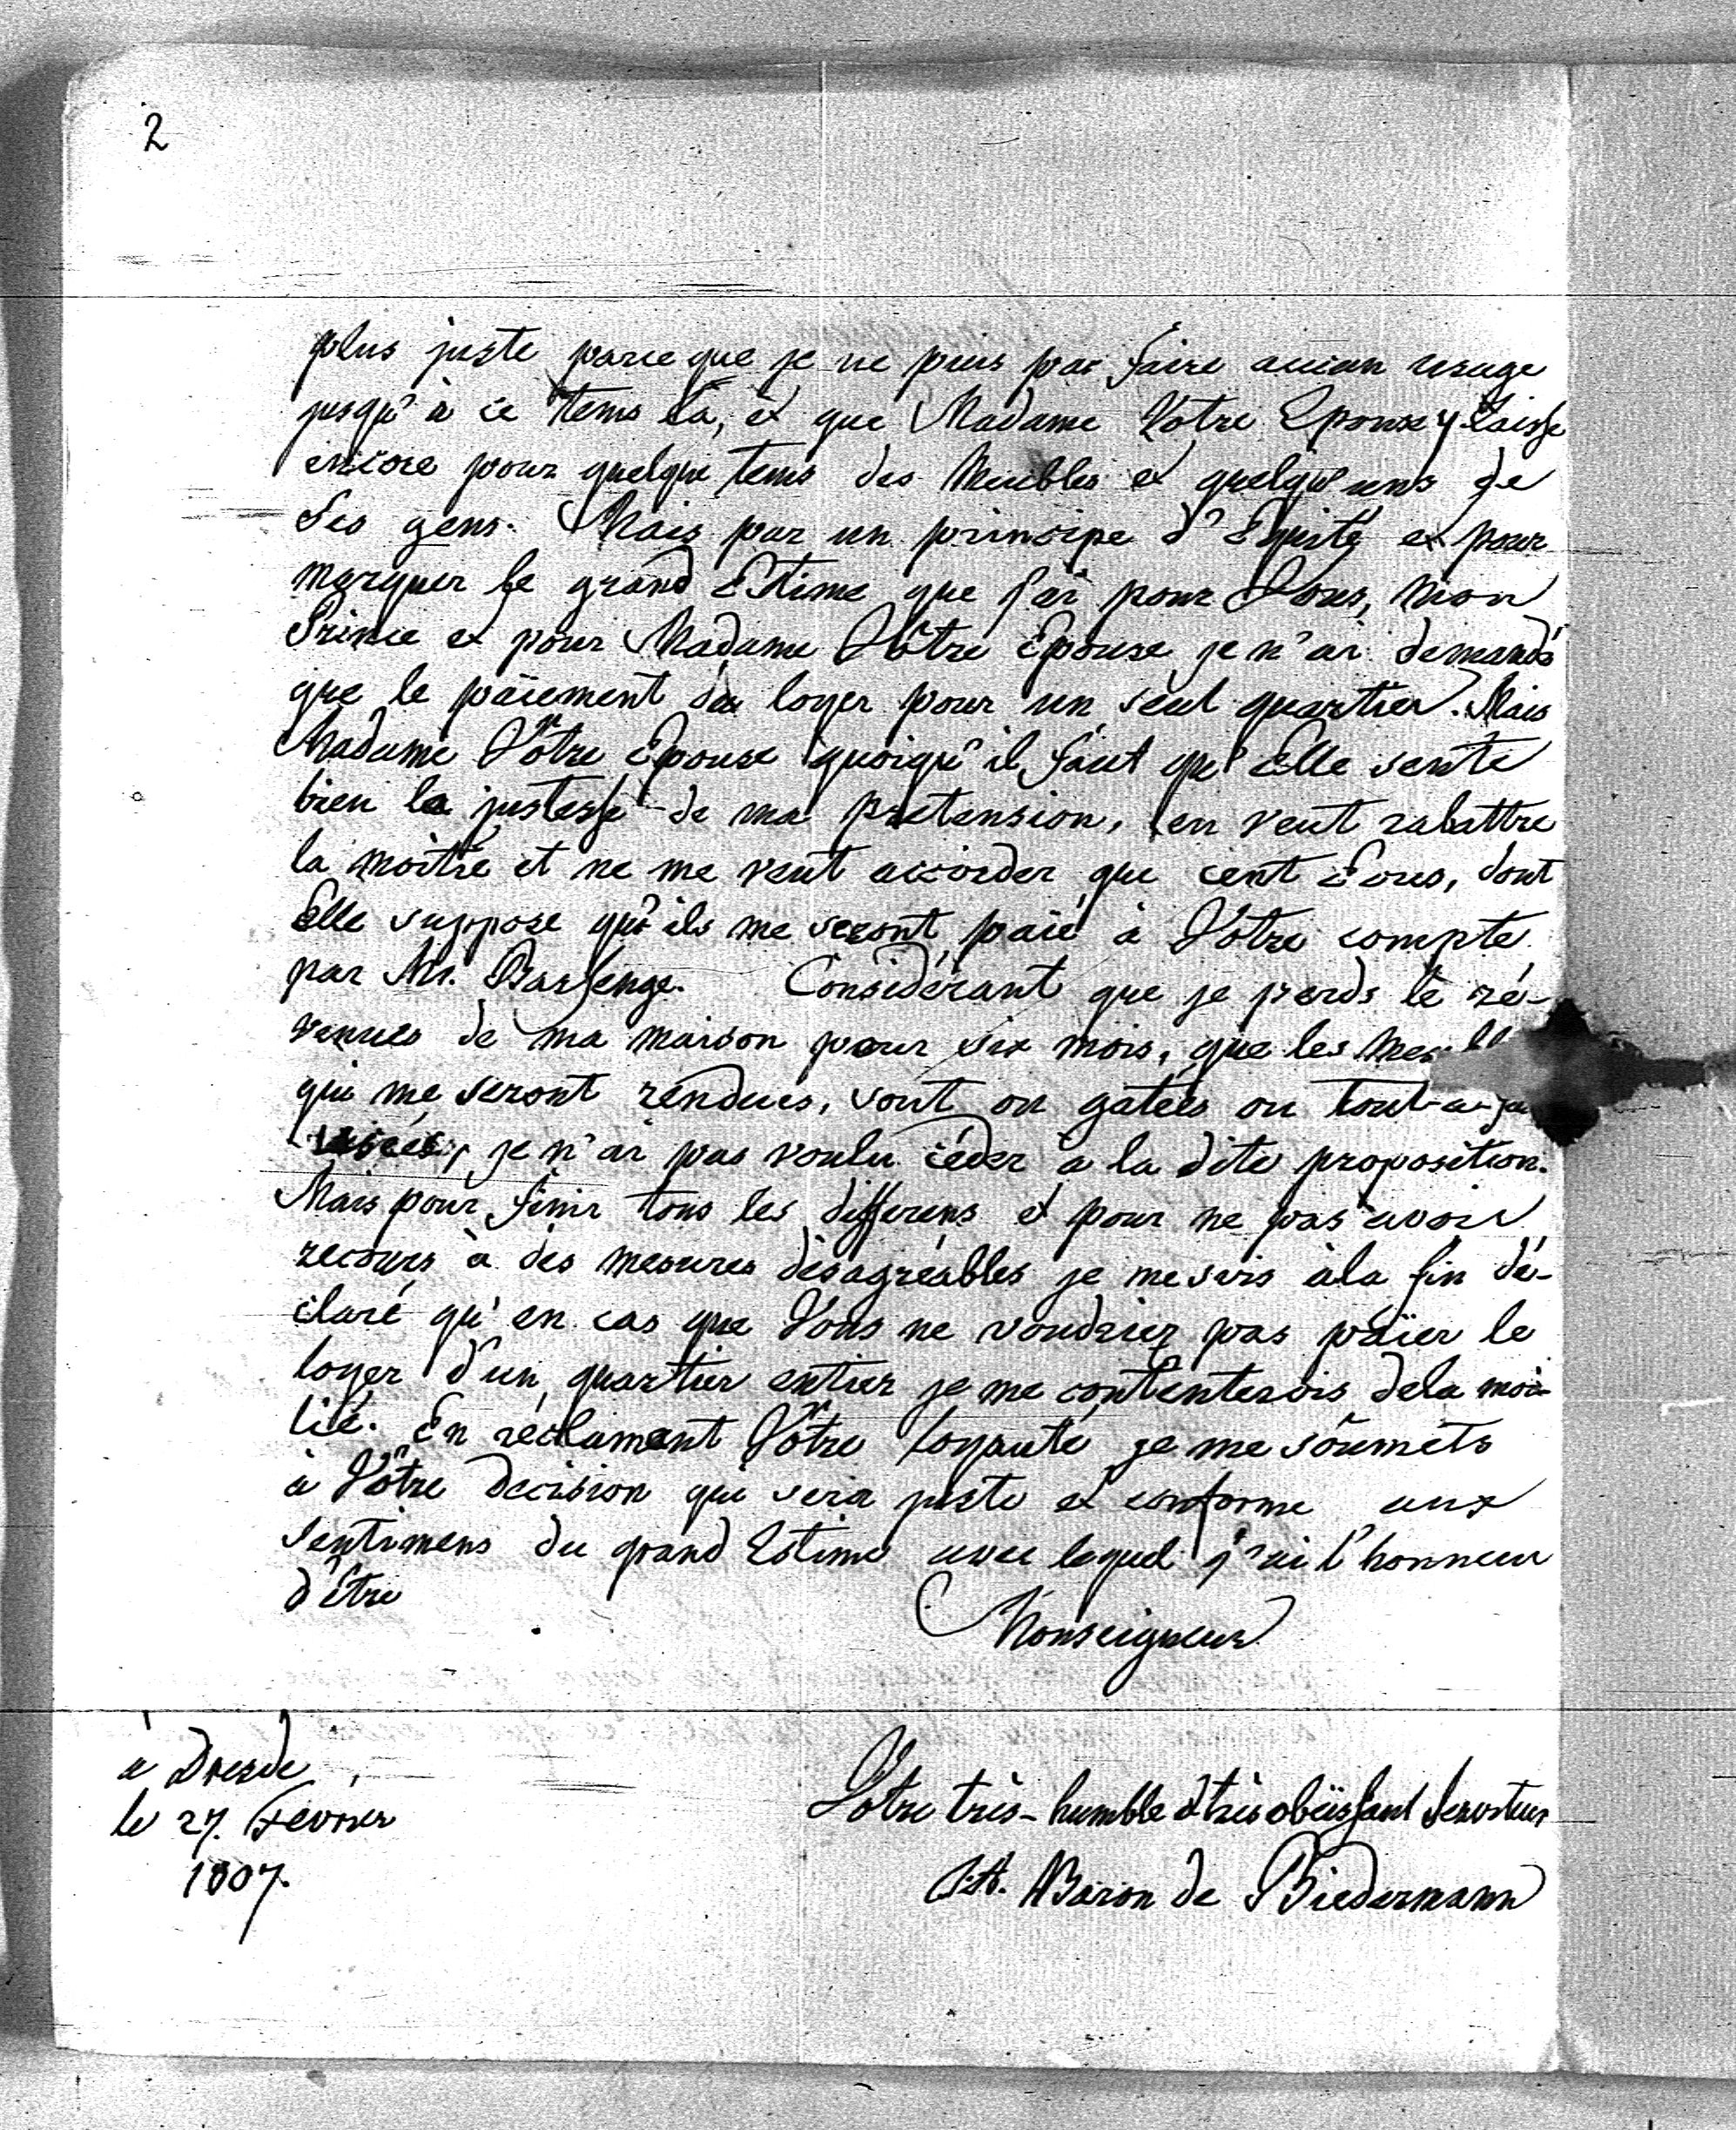 2
plus juste parce que je ne puis pas faire aucun usage
jusqu'à ce tems là, et que Madame Votre Epouse y laisse
encore pour quelque tems des Meubles et quelqu'uns de
Ses gens. Mais par un principe d'Equité et pour
marquer le grand Estime que j'ai pour Vous, Mon
Prince et pour Madame Vôtre Epouse je n'ai demandé
que le païement du loyer pour un seul quartier. Mais
Madame Vôtre Epouse quoiqu'il faut qu'Elle sente
bien la justesse de ma pretension, en veut rabattre
la moitié et ne me veut accorder que cent Ecus, dont
Elle suppose qu'ils me seront païé à Votre compte
par Mr. Bassenge. Considérant que je perds le ré-
venues de ma maison pour six mois, que les
qui me seront rendues, sont ou gatées ou tout-a-
usées, je n'ai pas voulu céder à la dite proposition.
Mais pour finir tous les differens et pour ne pas avoir
recours à des mesures désagréables je me suis à la fin dé-
claré qu'en cas que Vous ne voudriez pas païer le
loyer d'un quartier entier je me contenterois de la moi-
tié. En réclamant Vôtre loyauté je me soumets
à Vôtre decision qui sera juste et conforme aux
sentimens du grand Estime avec lequel j'ai l'honneur
d'être
Monseigneur
à Dresde
le 27. Fevrier
1807.
Votre très-humble et très obéissant Serviteur
Baron de Biedermann